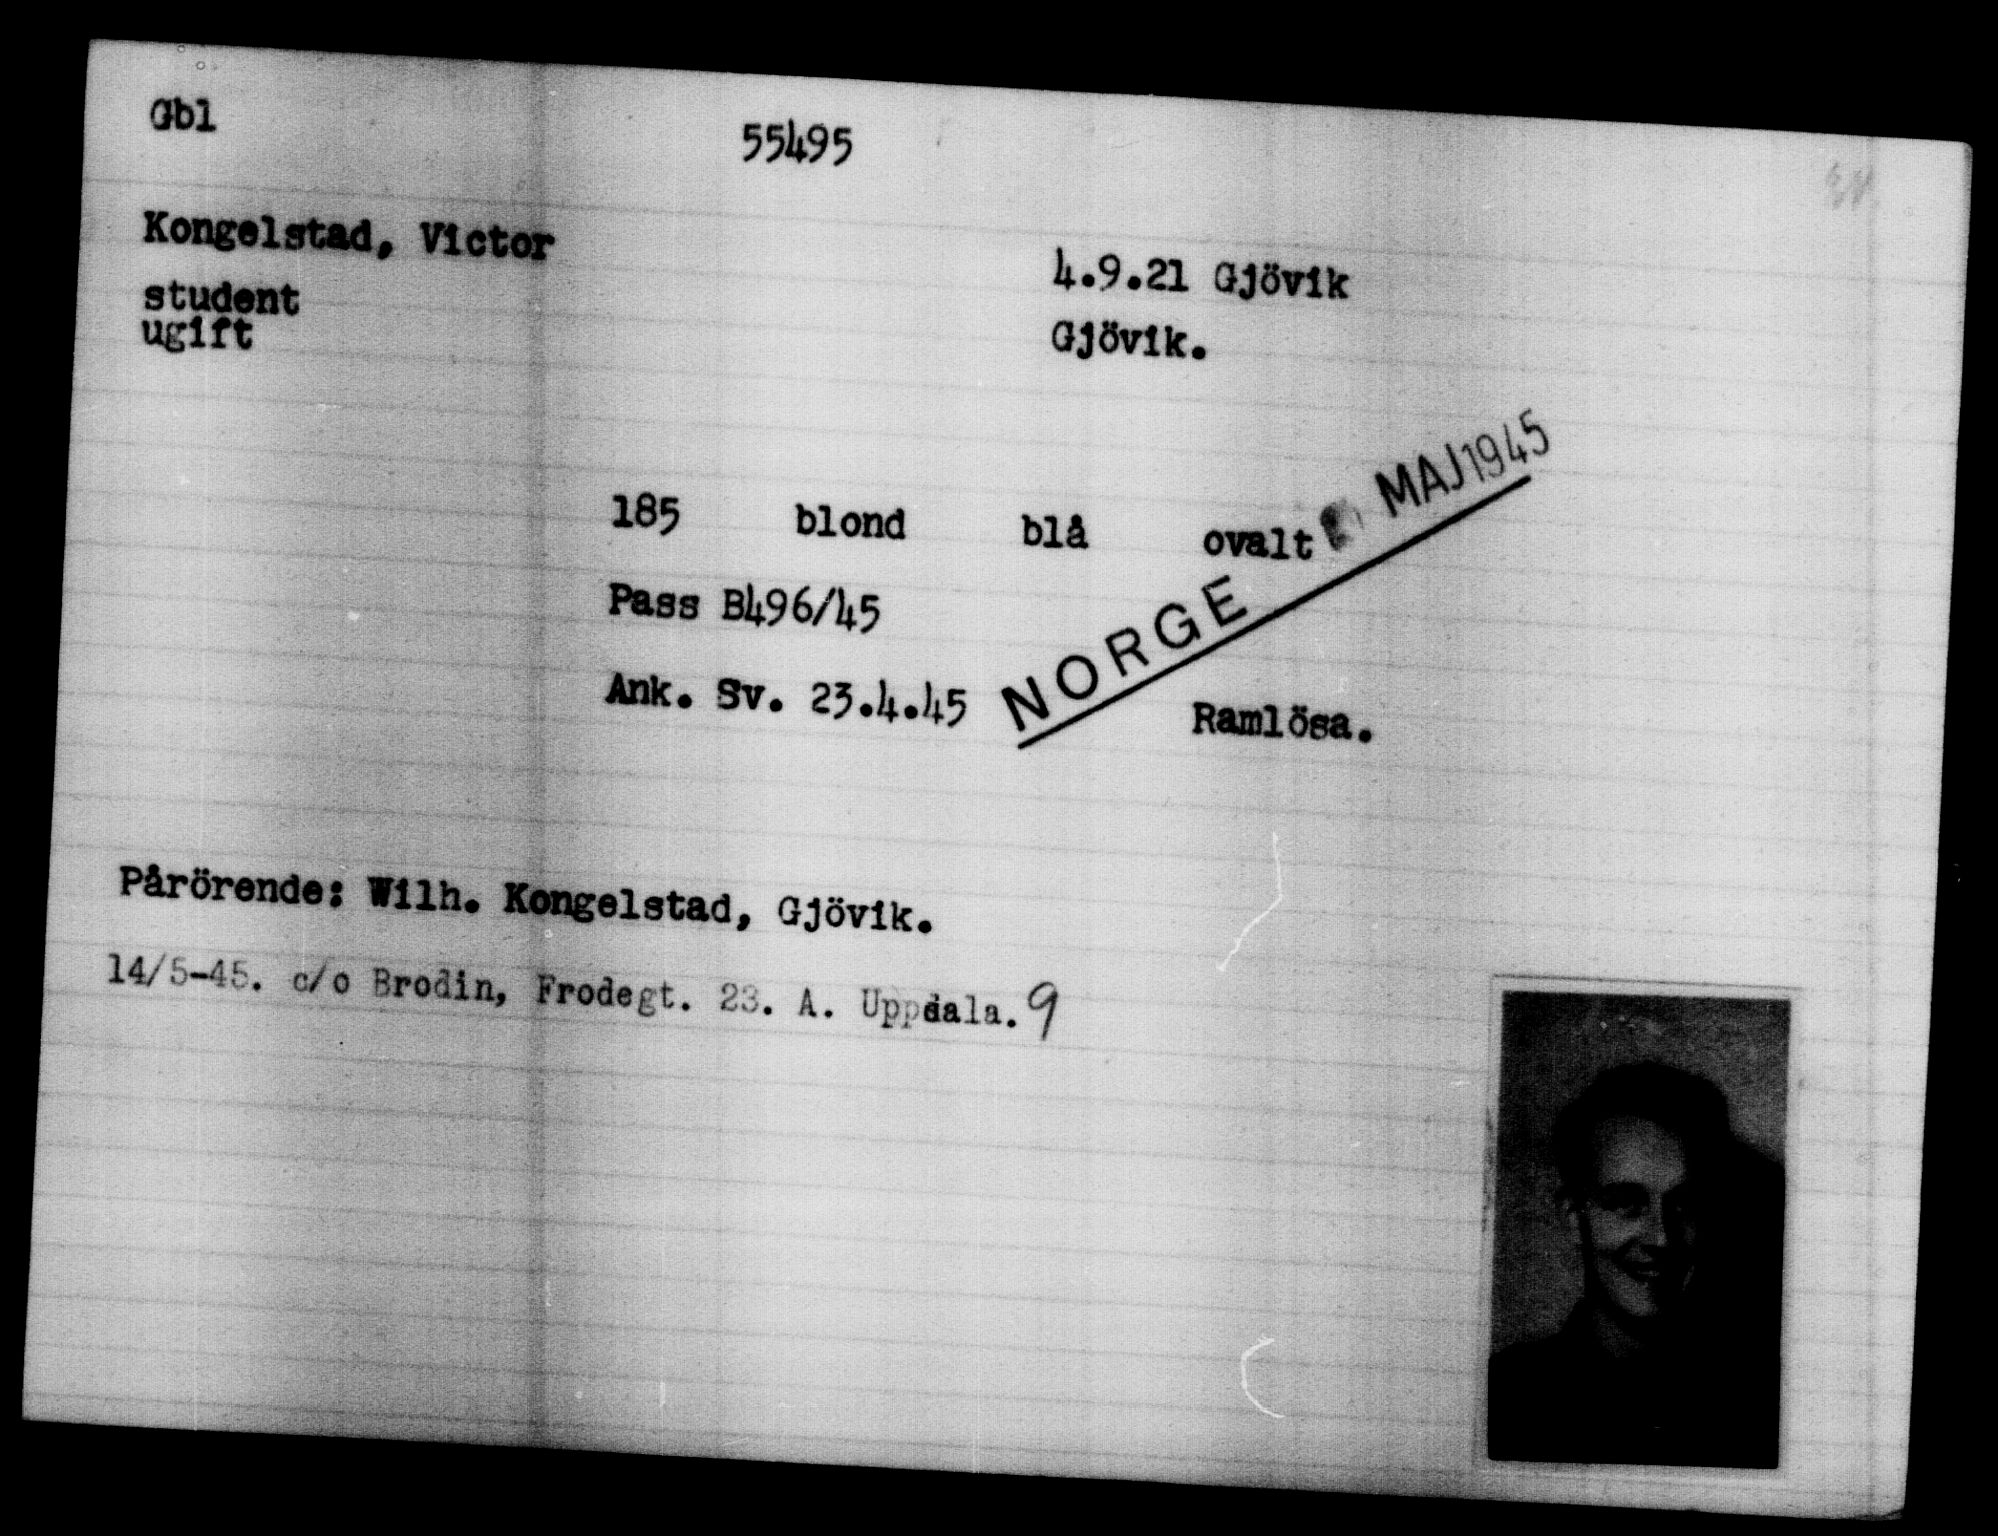 Gbl
55495
Kongelstad, Victor
4.9.21 Gjövik
student
ugift
Gjövik.
MAJ 1945
185 blond blå ovalt
NORGE
Pass B496/45
Ank. Sv. 23.4.45
Ramlösa.
Pårörende: Wilh. Kongelstad, Gjövik.
14/5-45. c/o Brodin, Frodegt. 23. A. Uppsala. 9